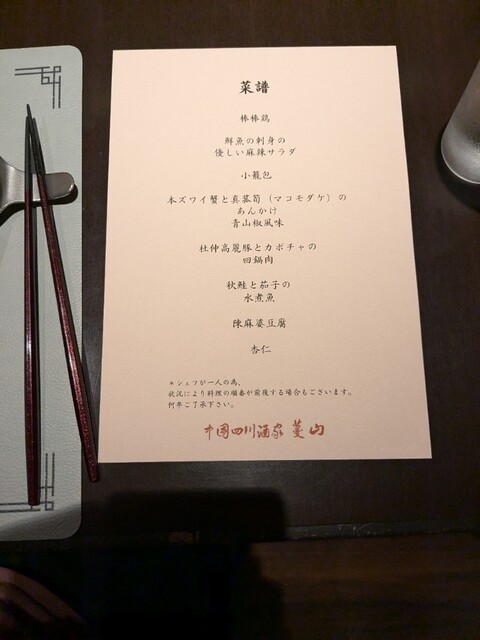 菜譜
棒棒鶏
鮮魚の刺身の
優しい麻辣サラダ
小籠包
本ズワイ蟹と真菰筍（マコモダケ）の
あんかけ
青山椒風味
杜仲高麗豚とカボチャの
回鍋肉
秋鮭と茄子の
水煮魚
陳麻婆豆腐
杏仁
＊シェフが一人の為、
状況により料理の順番が前後する場合もございます。
何卒ご了承下さい。
中國四川酒家 蔓山